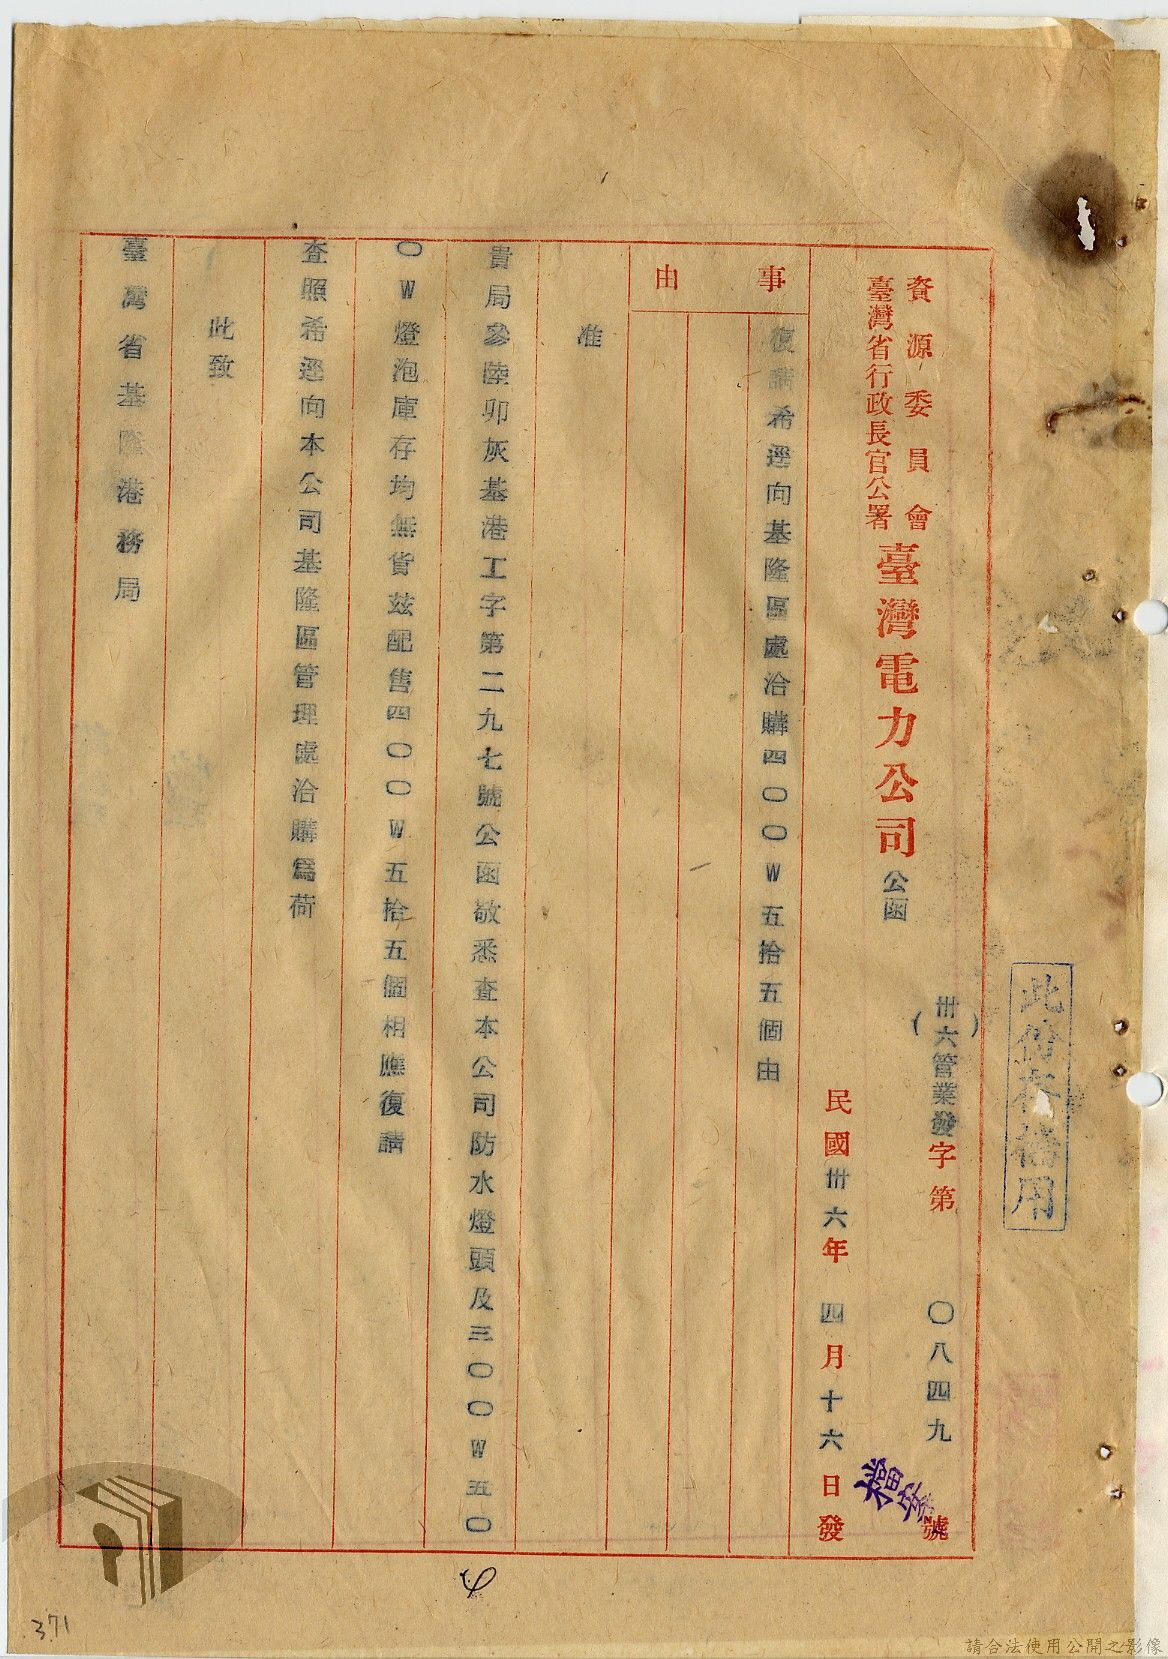 此份存備用
資源委員會
臺灣省行政長官公署
臺灣電力公司公函
(卅六)管業發字第〇八四九號
檔案
民國卅六年四月十六日發
事由
復請希逕向基隆區處洽購四〇〇W五拾五個由
准
貴局參陸卯灰基港工字第二九七號公函敬悉查本公司防水燈頭及三〇〇W五〇
〇W燈泡庫存均無貨茲配售四〇〇W五拾五個相應復請
查照希逕向本公司基隆區管理處洽購為荷
此致
臺灣省基隆港務局
371
請合法使用公開之影像